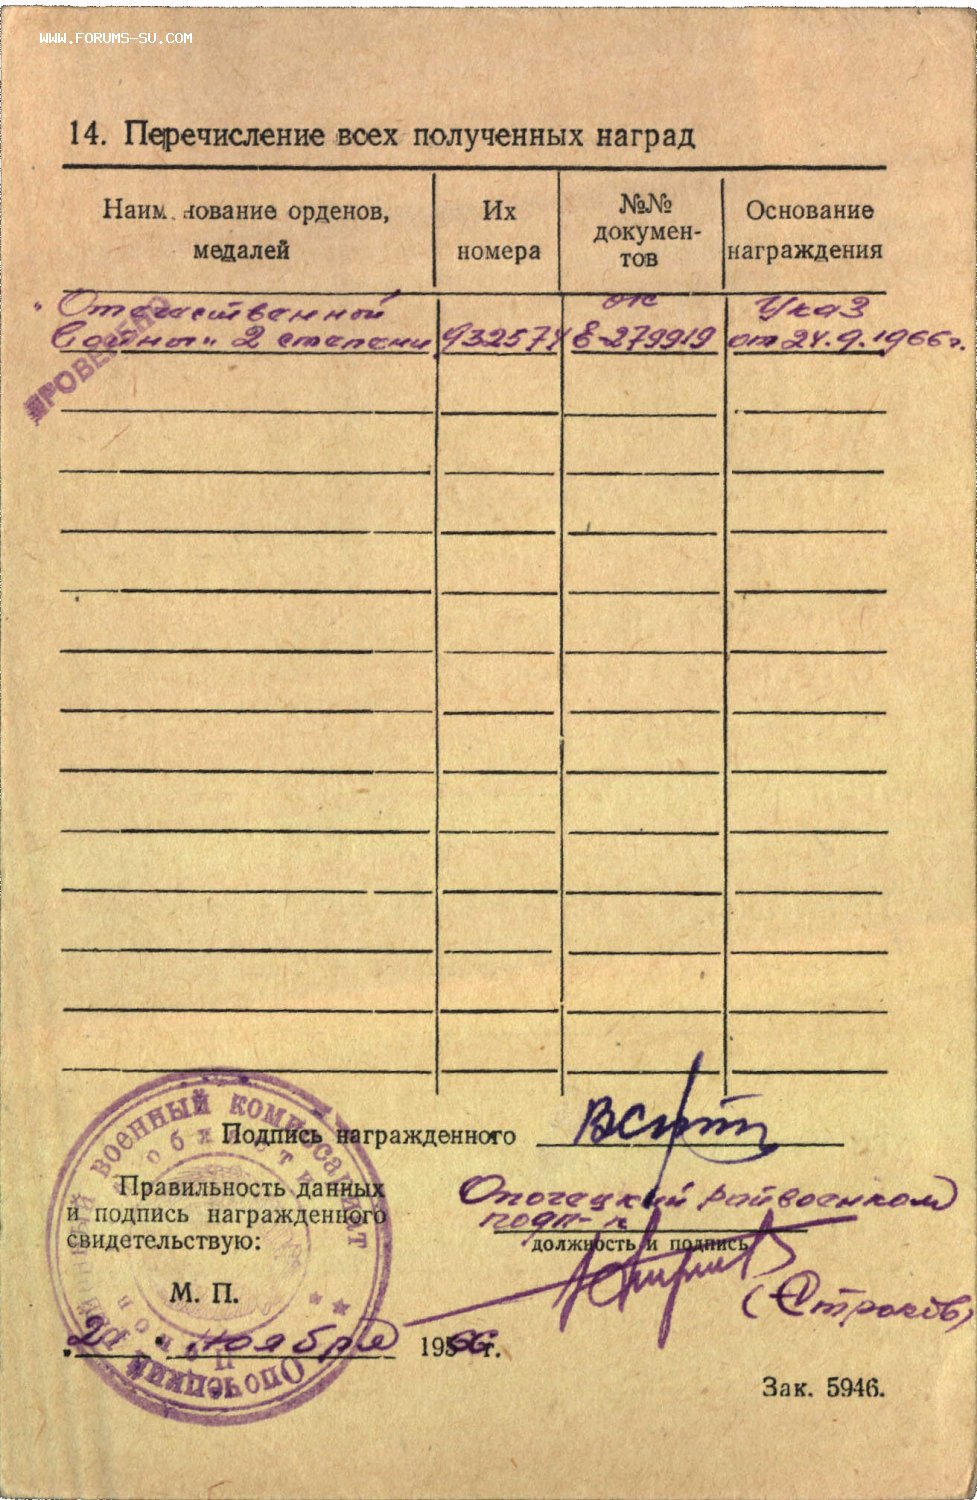 WWW.FORUMS-SU.COM
14. Перечисление всех полученных наград
Наименование орденов, медалей
Их номера
№№ документов
Основание награждения
"Отечественной
Войны" 2 степени
932574
ок
Е-279919
Указ
от 24.9.1966г.
ПРОВЕРЕНО
Подпись награжденного
Правильность данных
и подпись награжденного
свидетельствую:
Опочецкий райвоенком
подп-к
должность и подпись
(Строков)
М. П.
ноября 1966 г.
Зак. 5946.
ОПОЧЕЦКИЙ РАЙОННЫЙ ВОЕННЫЙ КОМИССАРИАТ
области